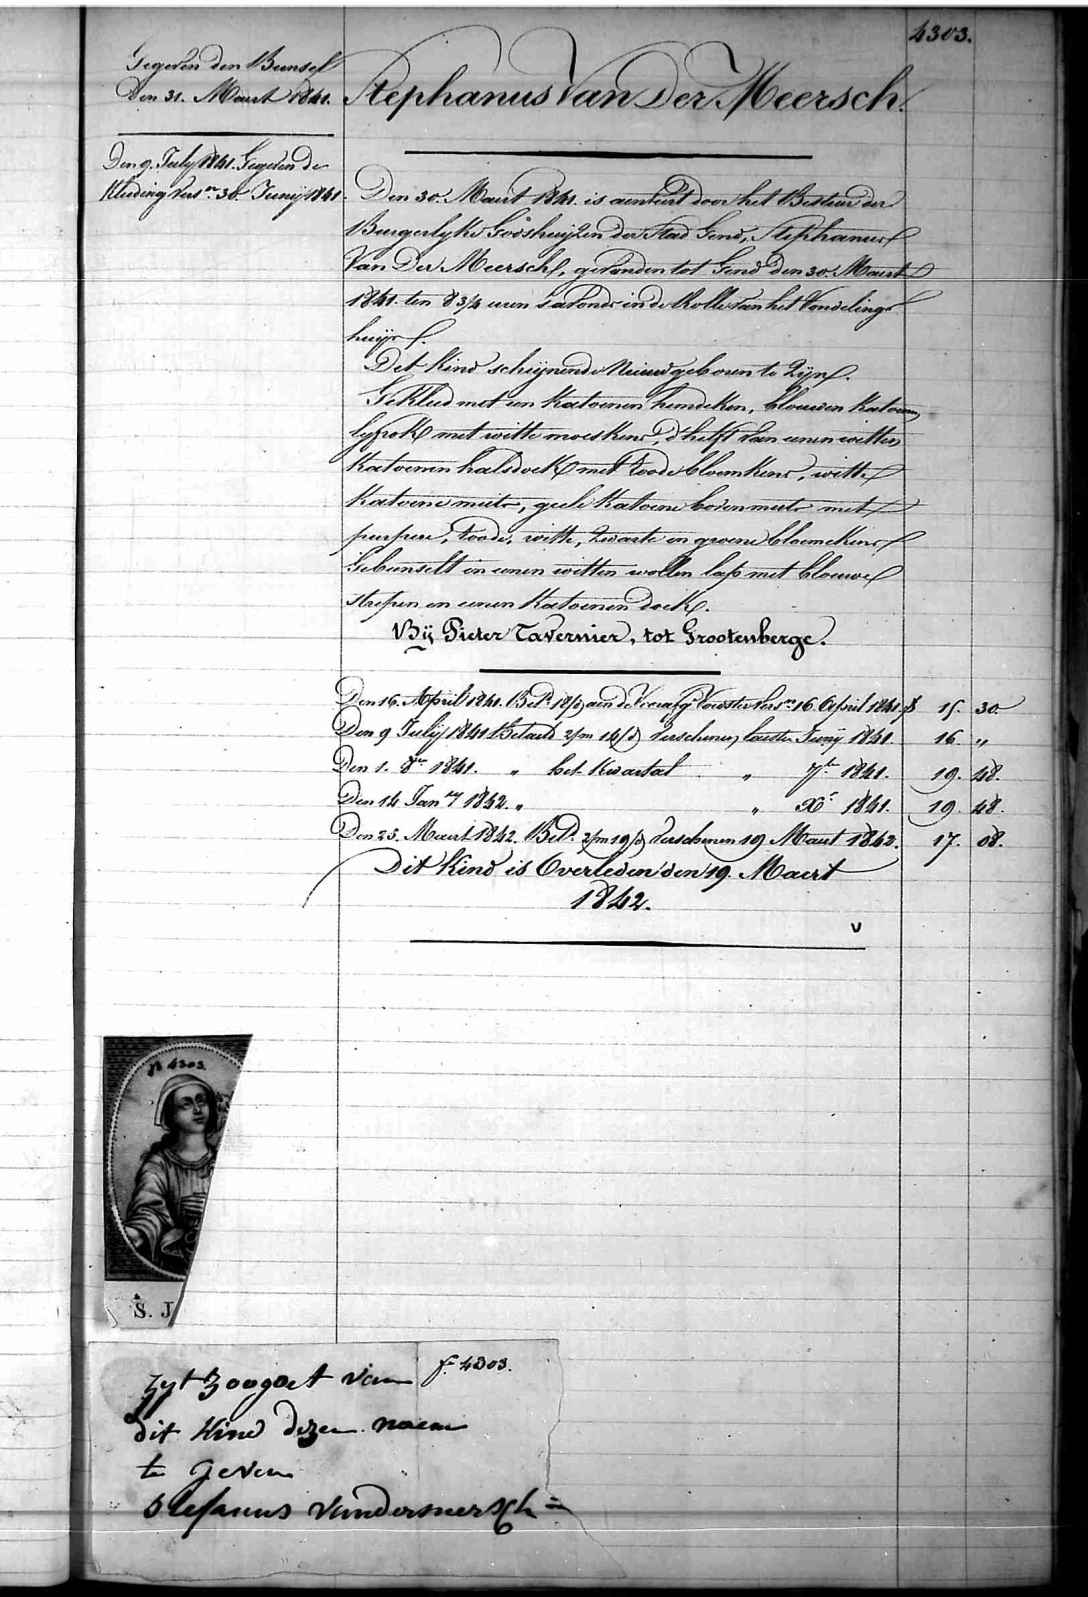 4303.
Gegeven den Bunsel
Den 31. Maart 1841.
Stephanus Van Der Meersch.
Den 9. July 1841. Gegeven de
Kleeding vers.en 30. Junij 1841.
Den 30. Maart 1841. is aenveert door het Bestier der
Burgerlyke Godshuijzen der Stad Gend, Stephanus
Van Der Meersch, gevonden tot Gend den 30. Maart
1841. ten 8 3/4 uren 's avonds in de Rolle van het Vondelings
huijs.
Det kind schijnende nieuwgeboren te zijn.
Gekleed met een katoenen hemdeken, blouwen katoenen
lyfrok met witte moeskens, d'helft van eenen witten
katoenen halsdoek met roode bloemkens, witte
katoene muts, geele katoene bovenmuts met
purpere, roode, witte, zwarte en groene bloemekens
Gebunselt in eenen witten wollen lap met blouwe
strepen en eenen katoenen doek.
Bij Pieter Tavernier, tot Grootenberge.
Den 16. April 1841. Bet. 18/d aen de Voorster vers.en 16. April 1841. f 15. 30.
Den 9 Julij 1841 Betaeld 2/m 14/d Verschenen laetsten Junij 1841. 16. "
Den 1. 8er 1841. " het Kwartal " 7er 1841. 19. 48.
Den 14 Janry 1842. " " Xr 1841. 19. 48.
Den 25. Maert 1842. Bet. 2/m 19/d Verschenen 19. Maert 1842. 17. 08.
Dit kind is Overleden den 19. Maert
1842.
v
fo 4303.
S. J
zyt zoogoet van
fo 4303.
dit kind dezen naem
te geven
Stefanus vandermersch =